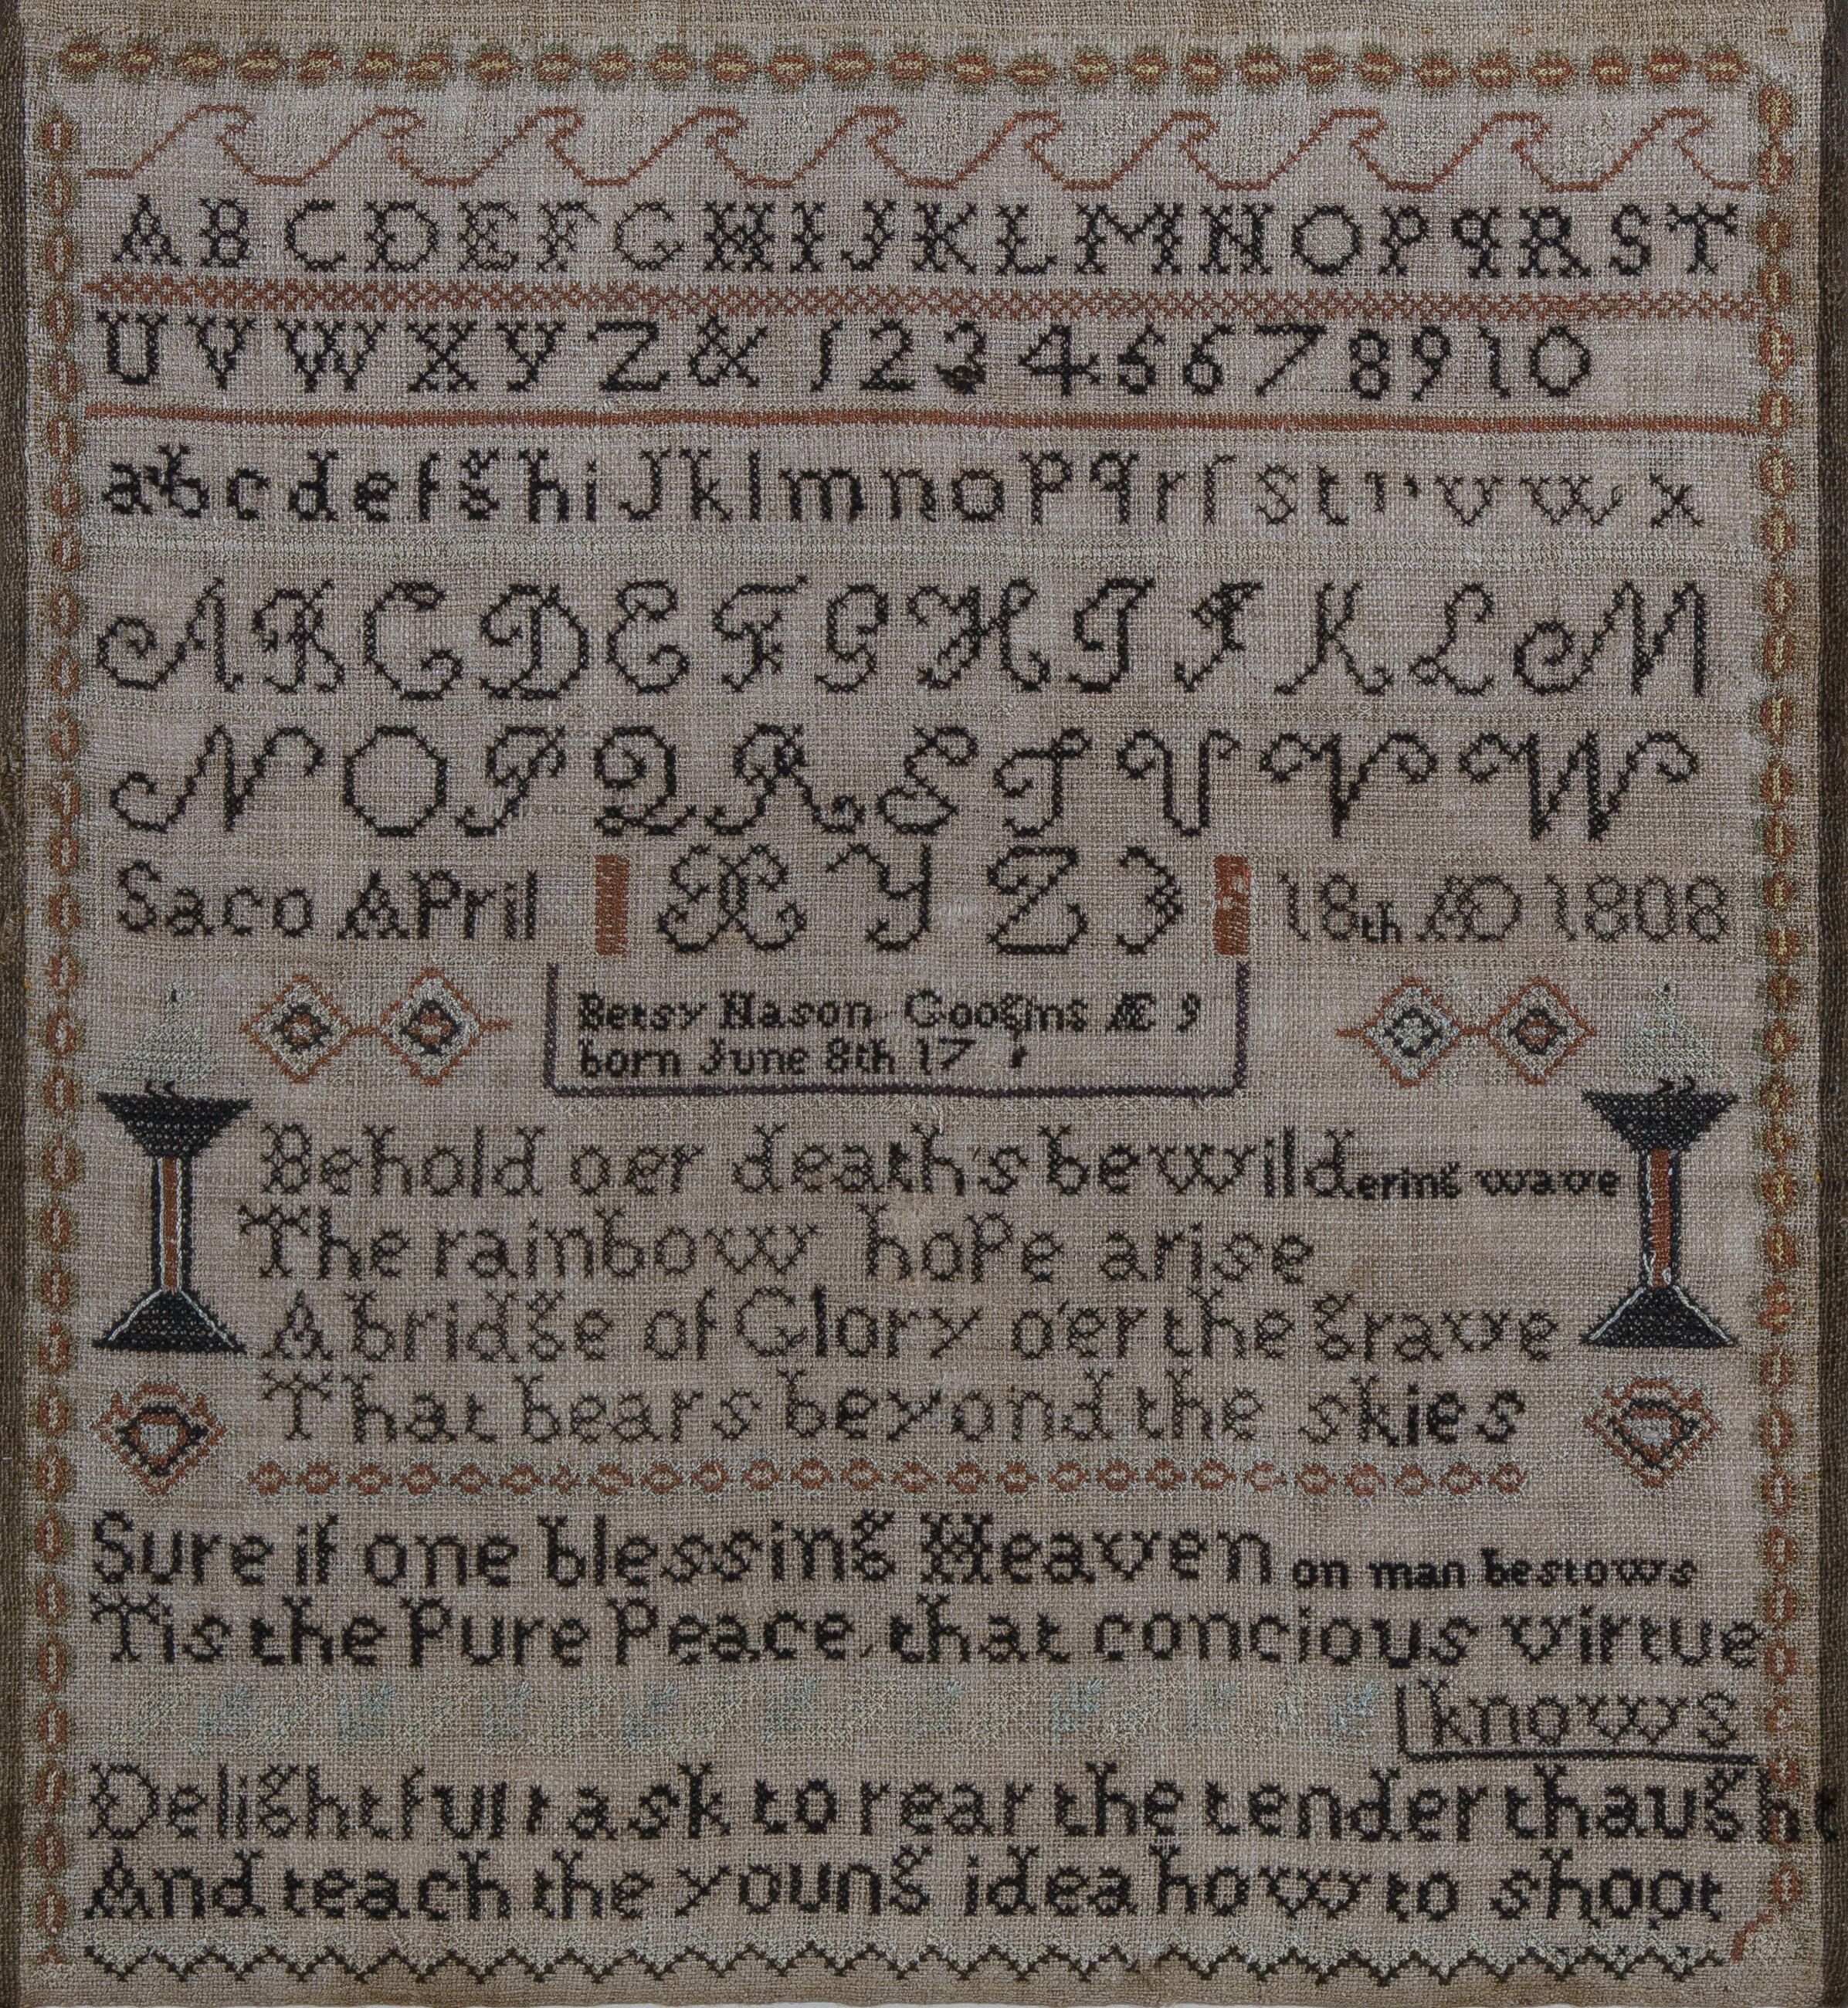 A B C D E F G H I J K L M N O P q R S T
U V W X Y Z & 1 2 3 4 5 6 7 8 9 10
a b c d e f g h i J k l m n o p q r ſ s t v w x
A B C D E F G H I J K L M
N O P Q R S T U V W
Saco April X Y Z 18th AD 1808
Betsy Googins Æ 9
born June 8th 17
Behold oer death's bewildering wave
The rainbow hope arise
A bridge of Glory o'er the grave
That bears beyond the skies
Sure if one blessing Heaven on man bestows
Tis the Pure Peace, that concious virtue
knows
Delightful task to rear the tender thaught
And teach the young idea how to shoot